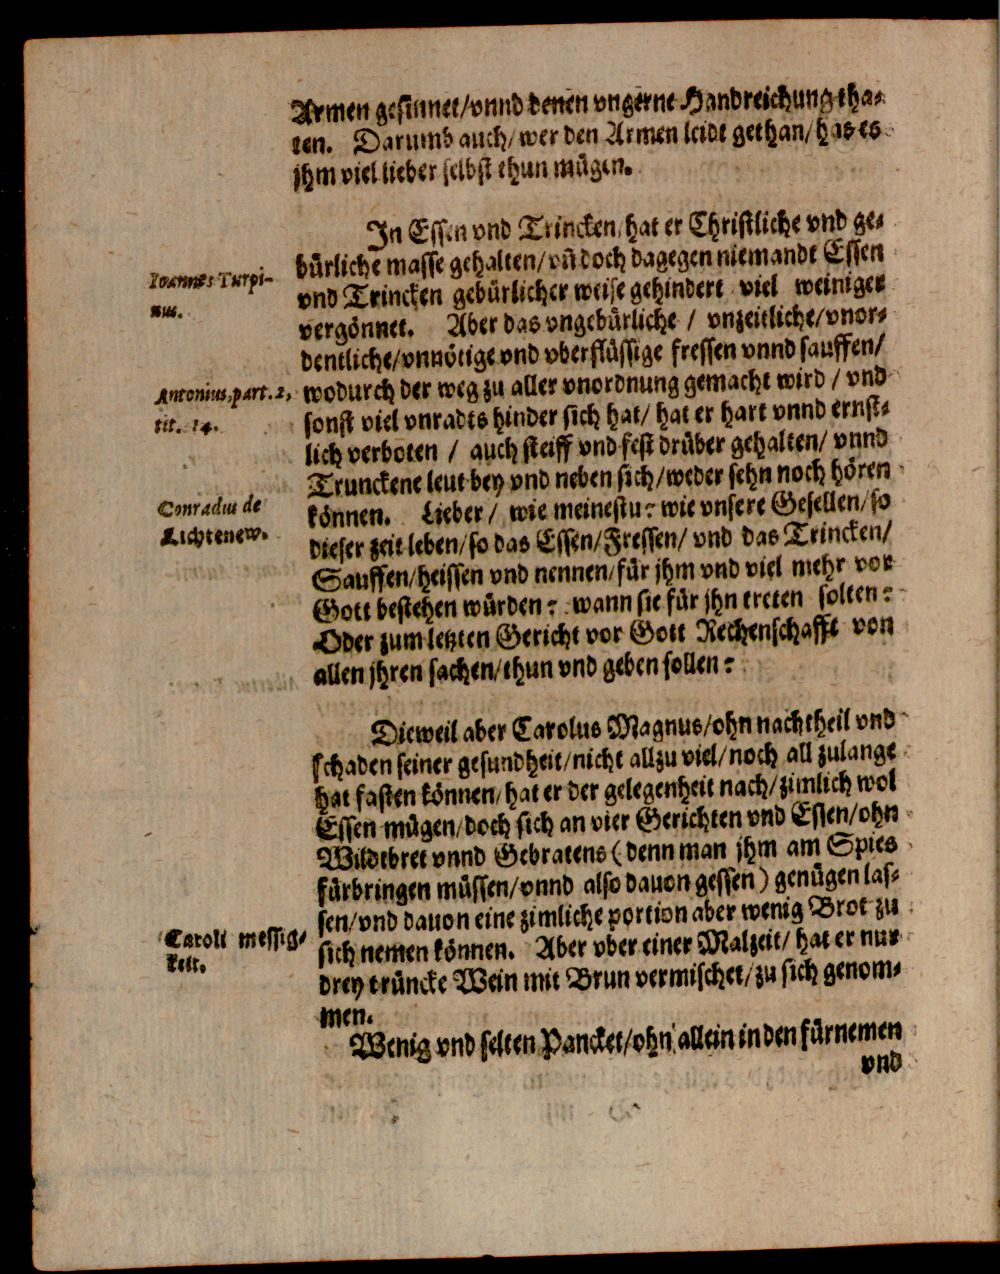 Armen gesinnet/vnnd denen vngerne Handreichung tha-
ten. Darumb auch/wer den Armen leidt gethan/has es
jhm viel lieber selbst thun mügen.
In Essen vnd Trincken/hat er Christliche vnd ge-
bürliche masse gehalten/vñ doch dagegen niemandt Essen
Ioannes Turpi-
vnd Trincken gebürlicher weise gehindert viel weiniger
nus.
vergönnet. Aber das vngebürliche / vnzeitliche/vnor-
dentliche/vnnötige vnd vberflüssige fressen vnnd sauffen/
Antonius,part.2,
wodurch der weg zu aller vnordnung gemacht wird / vnd
tit. 14.
sonst viel vnradts hinder sich hat/ hat er hart vnnd ernst-
lich verboten / auch steiff vnd fest drüber gehalten/ vnnd
Trunckene leut bey vnd neben sich/weder sehn noch hören
Conradus de
können. Lieber/ wie meinestu? wie vnsere Gesellen/so
Lichtenew.
dieser zeit leben/so das Essen/Fressen/ vnd das Trincken/
Sauffen/heissen vnd nennen/für jhm vnd viel mehr vor
Gott bestehen würden? wann sie für jhn treten solten?
Oder zum letzten Gericht vor Gott Rechenschafft von
allen jhren sachen/thun vnd geben sollen?
Dieweil aber Carolus Magnus/ohn nachtheil vnd
schaden seiner gesundheit/nicht allzu viel/noch all zulange
hat fasten können/hat er der gelegenheit nach/zimlich wol
Essen mügen/doch sich an vier Gerichten vnd Essen/ohn
Wildtbret vnnd Gebratens (denn man jhm am Spies
fürbringen müssen/vnnd also dauon gessen) genügen las-
sen/vnd dauon eine zimliche portion aber wenig Brot zu
Caroli messig-
sich nemen können. Aber vber einer Malzeit/ hat er nur
keit.
drey trüncke Wein mit Brun vermischet/zu sich genom-
men.
Wenig vnd selten Pancket/ohn allein in den fürnemen
vnd